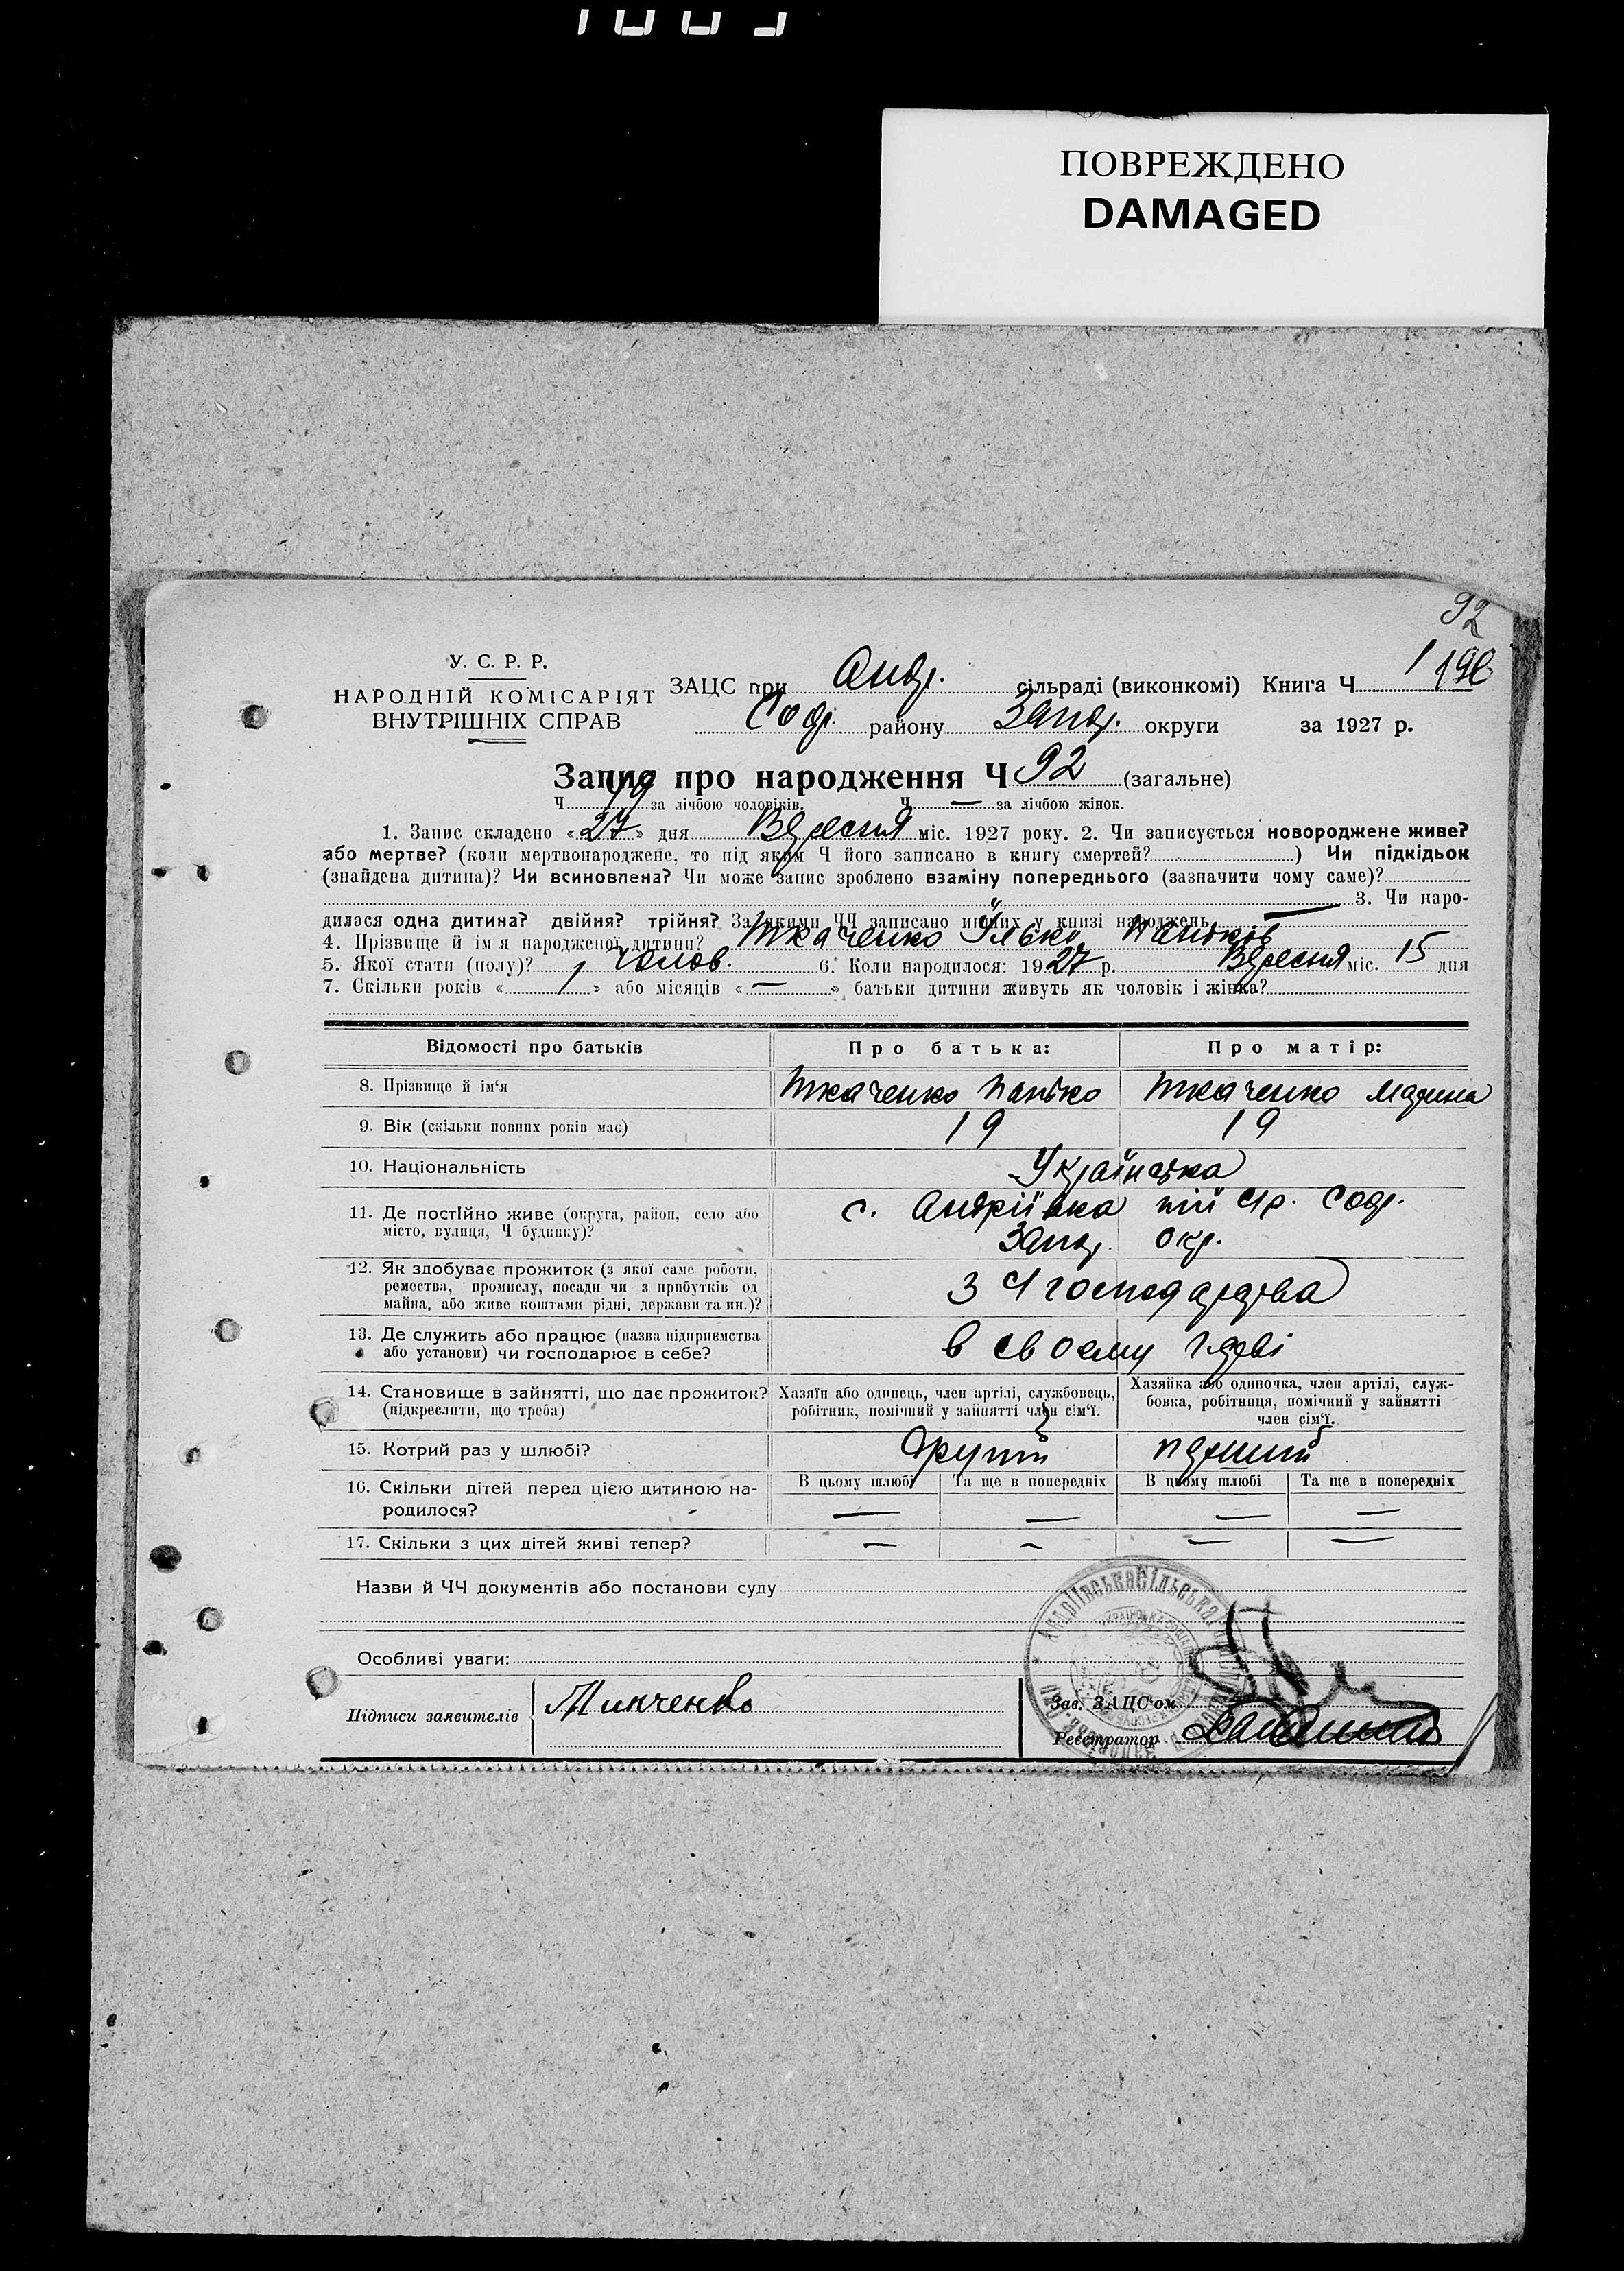 ПОВРЕЖДЕНО
DAMAGED
92
У. С. Р. Р.
НАРОДНІЙ КОМІСАРІЯТ
ВНУТРІШНІХ СПРАВ
ЗАЦС при Андр. сільраді (виконкомі) Книга Ч 1
Соф. району Запор. округи за 1927 р.
Запис про народження Ч 92 (загальне)
Ч за лічбою чоловіків. Ч — за лічбою жінок.
1. Запис складено «27» дня Вересня міс. 1927 року. 2. Чи записується новороджене живе?
або мертве? (коли мертвонароджене, то під яким Ч його записано в книгу смертей? ) Чи підкідьок
(знайдена дитина)? Чи всиновлена? Чи може запис зроблено взаміну попереднього (зазначити чому саме)?
3. Чи наро-
дилася одна дитина? двійня? трійня? За якими ЧЧ записано инших у книзі народжень —
4. Прізвище й ім я народженої дитини? Ткаченко Ілько Паньків
5. Якої стати (полу)? Чолов. 6. Коли народилося: 1927 р. Вересня міс. 15 дня
7. Скільки років «1» або місяців «—» батьки дитини живуть як чоловік і жінка?
Відомості про батьків Про батька: Про матір:
8. Прізвище й ім‘я Ткаченко Панько Ткаченко Марина
9. Вік (скільки повних років має) 19 19
10. Національність Українська
11. Де постійно живе (округа, район, село або
місто, вулиця, Ч будинку)?
с. Андріївка Соф.
Запор. окр.
12. Як здобуває прожиток (з якої саме роботи,
ремества, промислу, посади чи з прибутків од
майна, або живе коштами рідні, держави та ин.)?
з Ч господарства
13. Де служить або працює (назва підприємства
або установи) чи господарює в себе?
в своєму
14. Становище в зайнятті, що дає прожиток?
(підкреслити, що треба)
Хазяїн або одинець, член артілі, службовець,
робітник, помічний у зайнятті член сім‘ї.
Хазяйка або одиночка, член артілі, служ-
бовка, робітниця, помічний у зайнятті
член сім‘ї.
15. Котрий раз у шлюбі? Другий перший
16. Скільки дітей перед цією дитиною на-
родилося?
В цьому шлюбі Та ще в попередніх В цьому шлюбі Та ще в попередніх
— — — —
17. Скільки з цих дітей живі тепер? — — — —
Назви й ЧЧ документів або постанови суду
Особливі уваги:
Підписи заявителів
Зав. ЗАЦС‘ом
Реєстратор
Андріївська Сільська